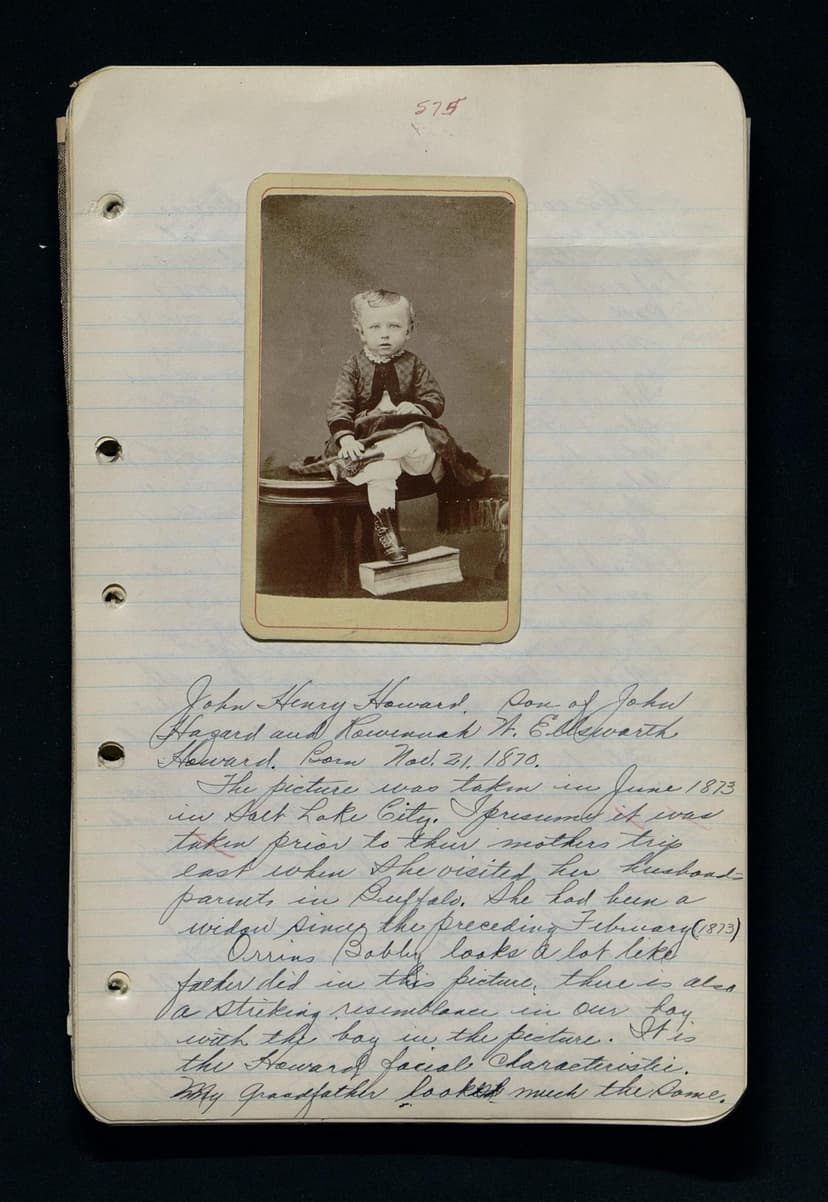 575
John Henry Howard. Son of John
Hazard and Rowinnah W. Ellsworth
Howard. Born Nov. 21, 1870.
The picture was taken in June 1873
in Salt Lake City. I presume it was
taken prior to their mothers trip
east when she visited her husbands
parents in Buffalo. She had been a
widow since the preceding February (1873)
Orrins Bobby looks a lot like
father did in this picture, there is also
a striking resemblance in our boy
with the boy in the picture. It is
the Howard facial characteristic.
My Grandfather looked much the same.